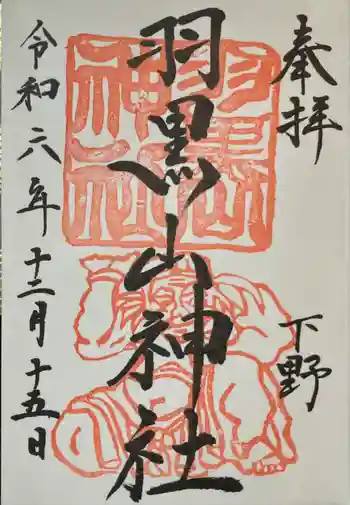 奉拝
下野
羽黒山神社
羽黒山
神社
令和六年十二月十五日